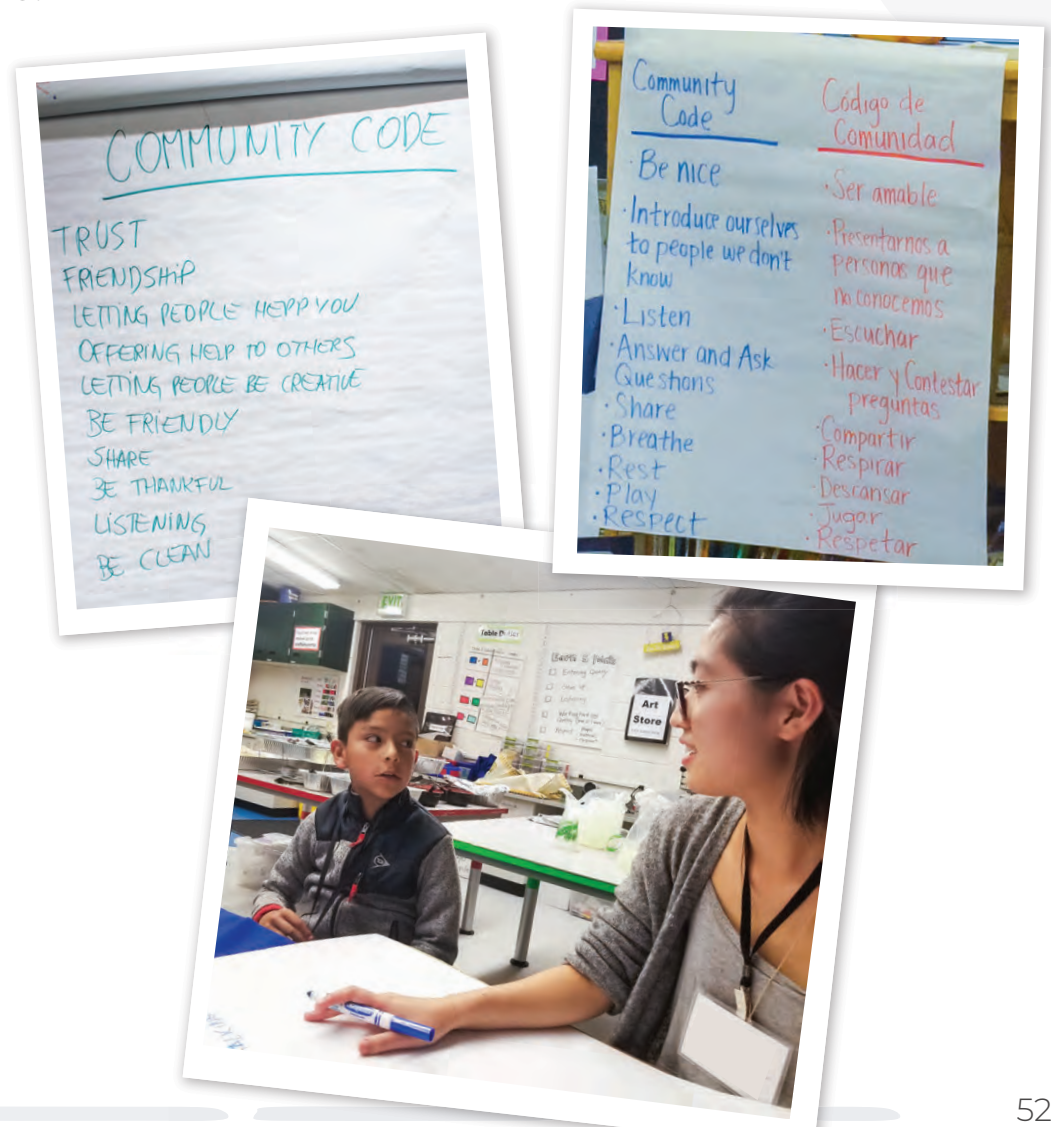 COMMUNITY CODE
TRUST
FRIENDSHIP
LETTING PEOPLE HEPP YOU
OFFERING HELP TO OTHERS
LETTING PEOPLE BE CREATIVE
BE FRIENDLY
SHARE
BE THANKFUL
LISTENING
BE CLEAN
Community
Code
· Be nice
· Introduce ourselves
to people we don't
know
· Listen
· Answer and Ask
Questions
· Share
· Breathe
· Rest
· Play
· Respect
Código de
Comunidad
· Ser amable
· Presentarnos a
personas que
no conocemos
· Escuchar
· Hacer y Contestar
preguntas
· Compartir
· Respirar
· Descansar
· Jugar
· Respetar
EXIT
Art
Store
52